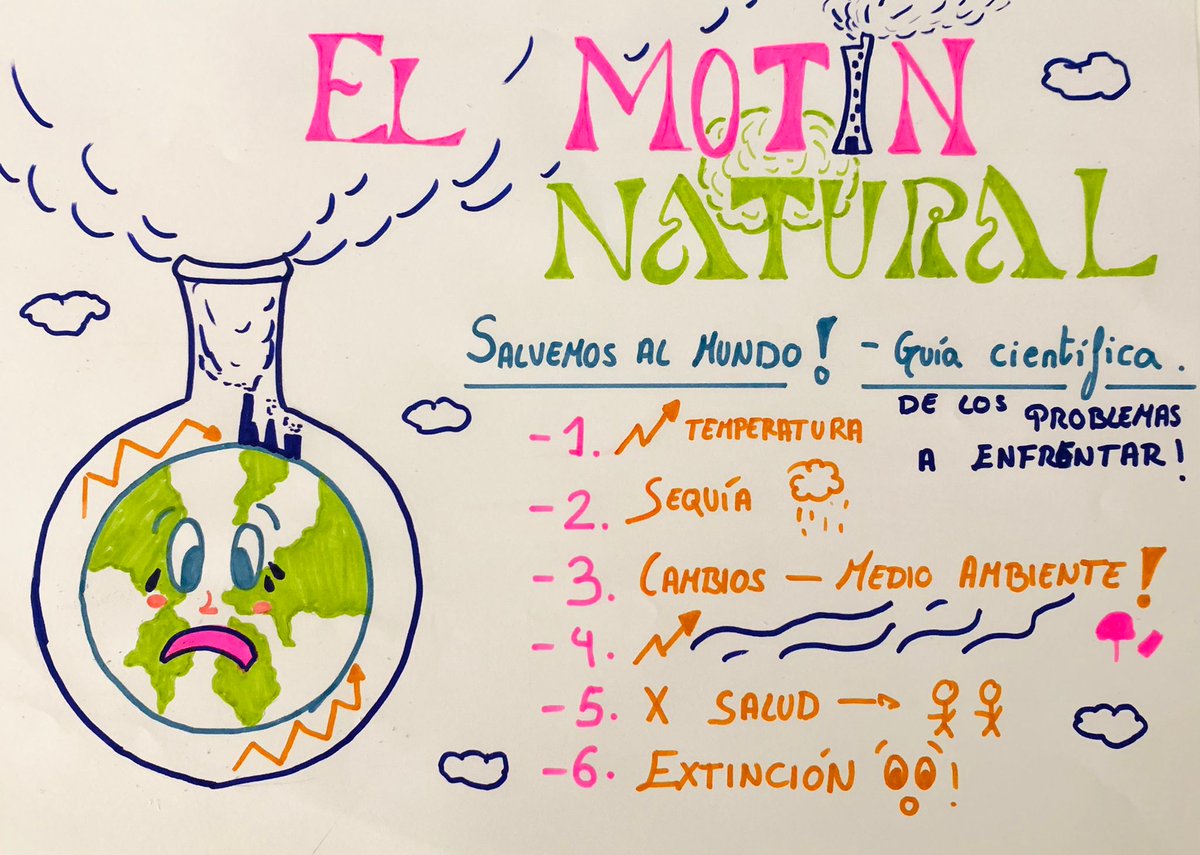 EL MOTIN
NATURAL
SALVEMOS AL MUNDO! - Guía científica.
DE LOS PROBLEMAS
A ENFRENTAR!
-1. TEMPERATURA
-2. SEQUÍA
-3. CAMBIOS - MEDIO AMBIENTE!
-4.
-5. X SALUD →
-6. EXTINCIÓN !